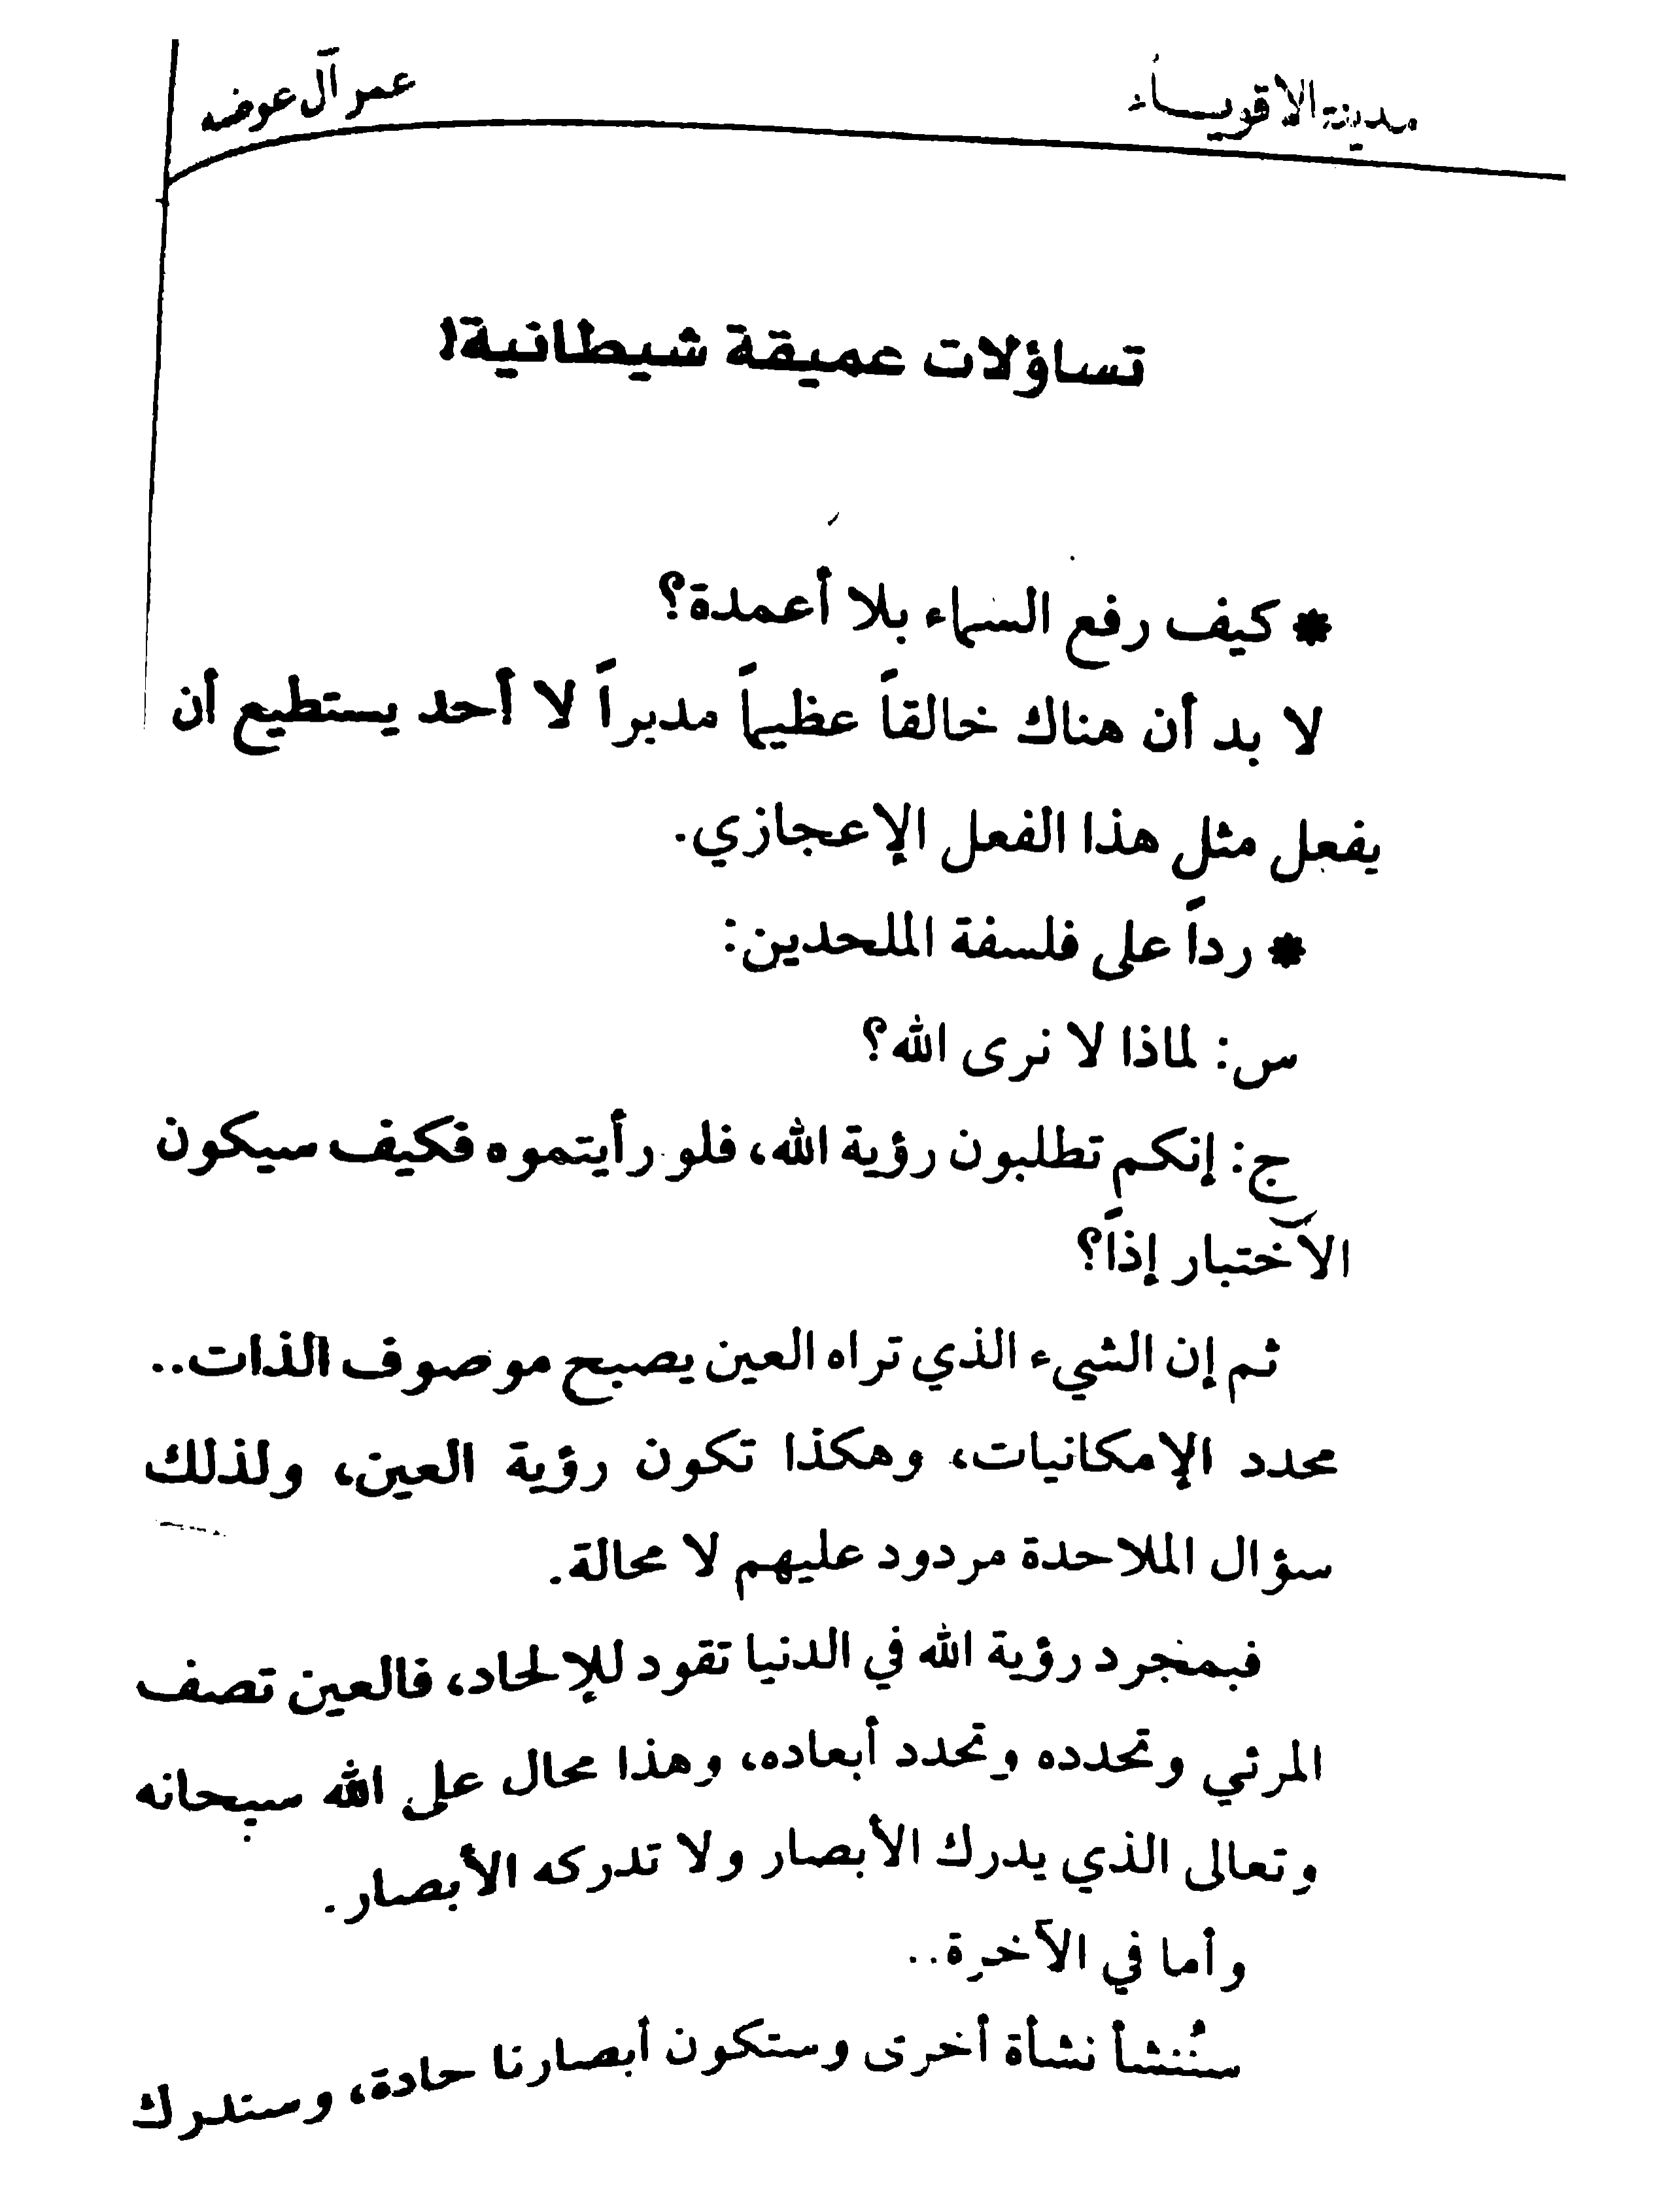 مدينة الاقوياء
عمر آل عوض
تساؤلات عميقة شيطانية!
* كيف رفع السماء بلا أعمدة؟
لا بد أن هناك خالقاً عظيماً مدبراً لا أحد يستطيع أن
يفعل مثل هذا الفعل الإعجازي.
* رداً على فلسفة الملحدين:
س: لماذا لا نرى الله؟
ج: إنكم تطلبون رؤية الله، فلو رأيتموه فكيف سيكون
الاختبار إذاً؟
ثم إن الشيء الذي تراه العين يصبح موصوف الذات..
محدد الإمكانيات، وهكذا تكون رؤية العين، ولذلك
سؤال الملاحدة مردود عليهم لا محالة.
فبمنجرد رؤية الله في الدنيا تقود للإلحاد، فالعين تصف
المرئي وتحدده وتحدد أبعاده، وهذا محال على الله سبحانه
وتعالى الذي يدرك الأبصار ولا تدركه الأبصار.
وأما في الآخرة..
سنُنشأ نشأة أخرى وستكون أبصارنا حادة، وستدرك